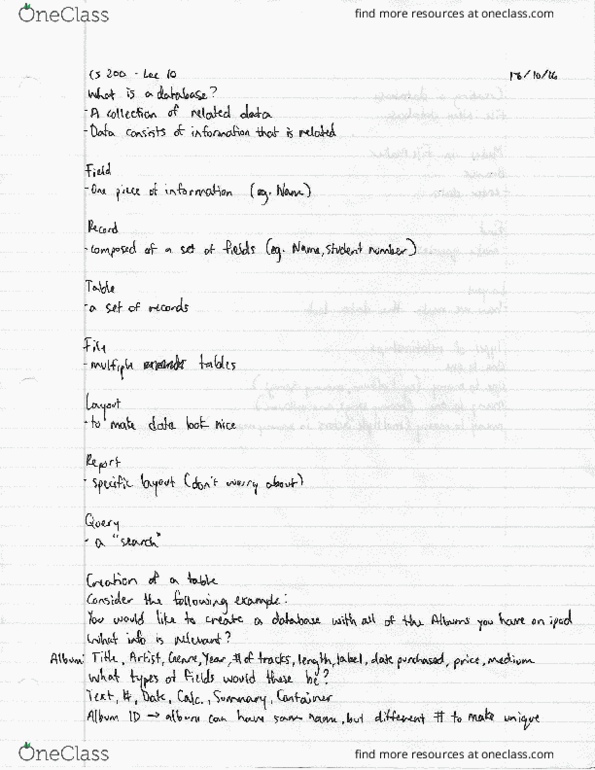 OneClass
find more resources at oneclass.com
CS 200 - Lec 10
18/10/16
What is a database?
- A collection of related data
- Data consists of information that is related
Field
- One piece of information (eg. Name)
Record
- composed of a set of fields (eg. Name, student number)
Table
- a set of records
File
- multiple tables
Layout
- to make data look nice
Report
- specific layout (don't worry about)
Query
- a "search"
Creation of a table
Consider the following example:
You would like to create a database with all of the Albums you have on ipad
What info is relevant?
Album: Title, Artist, Genre, Year, # of tracks, length, label, date purchased, price, medium
What types of fields would these be?
Text, #, Date, Calc., Summary, Container
Album ID → albums can have same name, but different # to make unique
OneClass
find more resources at oneclass.com